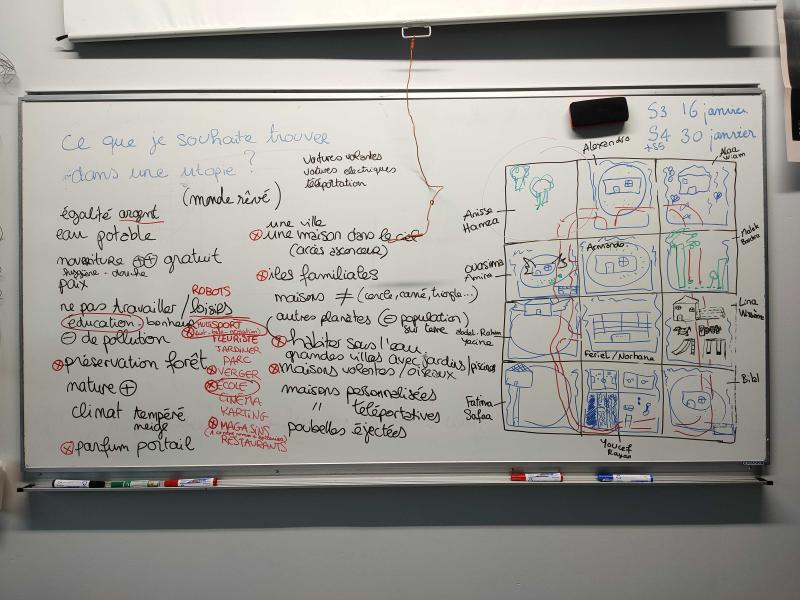 Ce que je souhaite trouver
dans une utopie ?
(monde rêvé)
voitures volantes
voitures electriques
téléportation
égalité argent
eau potable
nourriture ++ gratuit
hygiène - douche
paix
ne pas travailler / loisirs
éducation bonheur
- de pollution
préservation forêt
nature +
climat tempéré
neige
parfum portail
ROBOTS
SPORT
FLEURISTE
JARDINIER
PARC
VERGER
ÉCOLE
CINÉMA
KARTING
MAGASINS
RESTAURANTS
une ville
une maison dans le ciel
(accès ascenseur)
iles familiales
maisons ≠ (cercle, carré, triangle...)
autres planètes (- population)
sur terre
habiter sous l'eau
grandes villes avec jardins/piscines
maisons volantes / oiseaux
maisons personnalisées
" téléportatives
poubelles éjectées
S3 16 janvier
S4 30 janvier
+S5
Alexandro
Alaa
Wiam
Anissa
Hamza
Ouassima
Amira
Armando
Malak
Lina
Abdel-Rahim
Yacine
Feriel / Norhane
Bibl
Fatima
Safaa
Youcef
Rayan